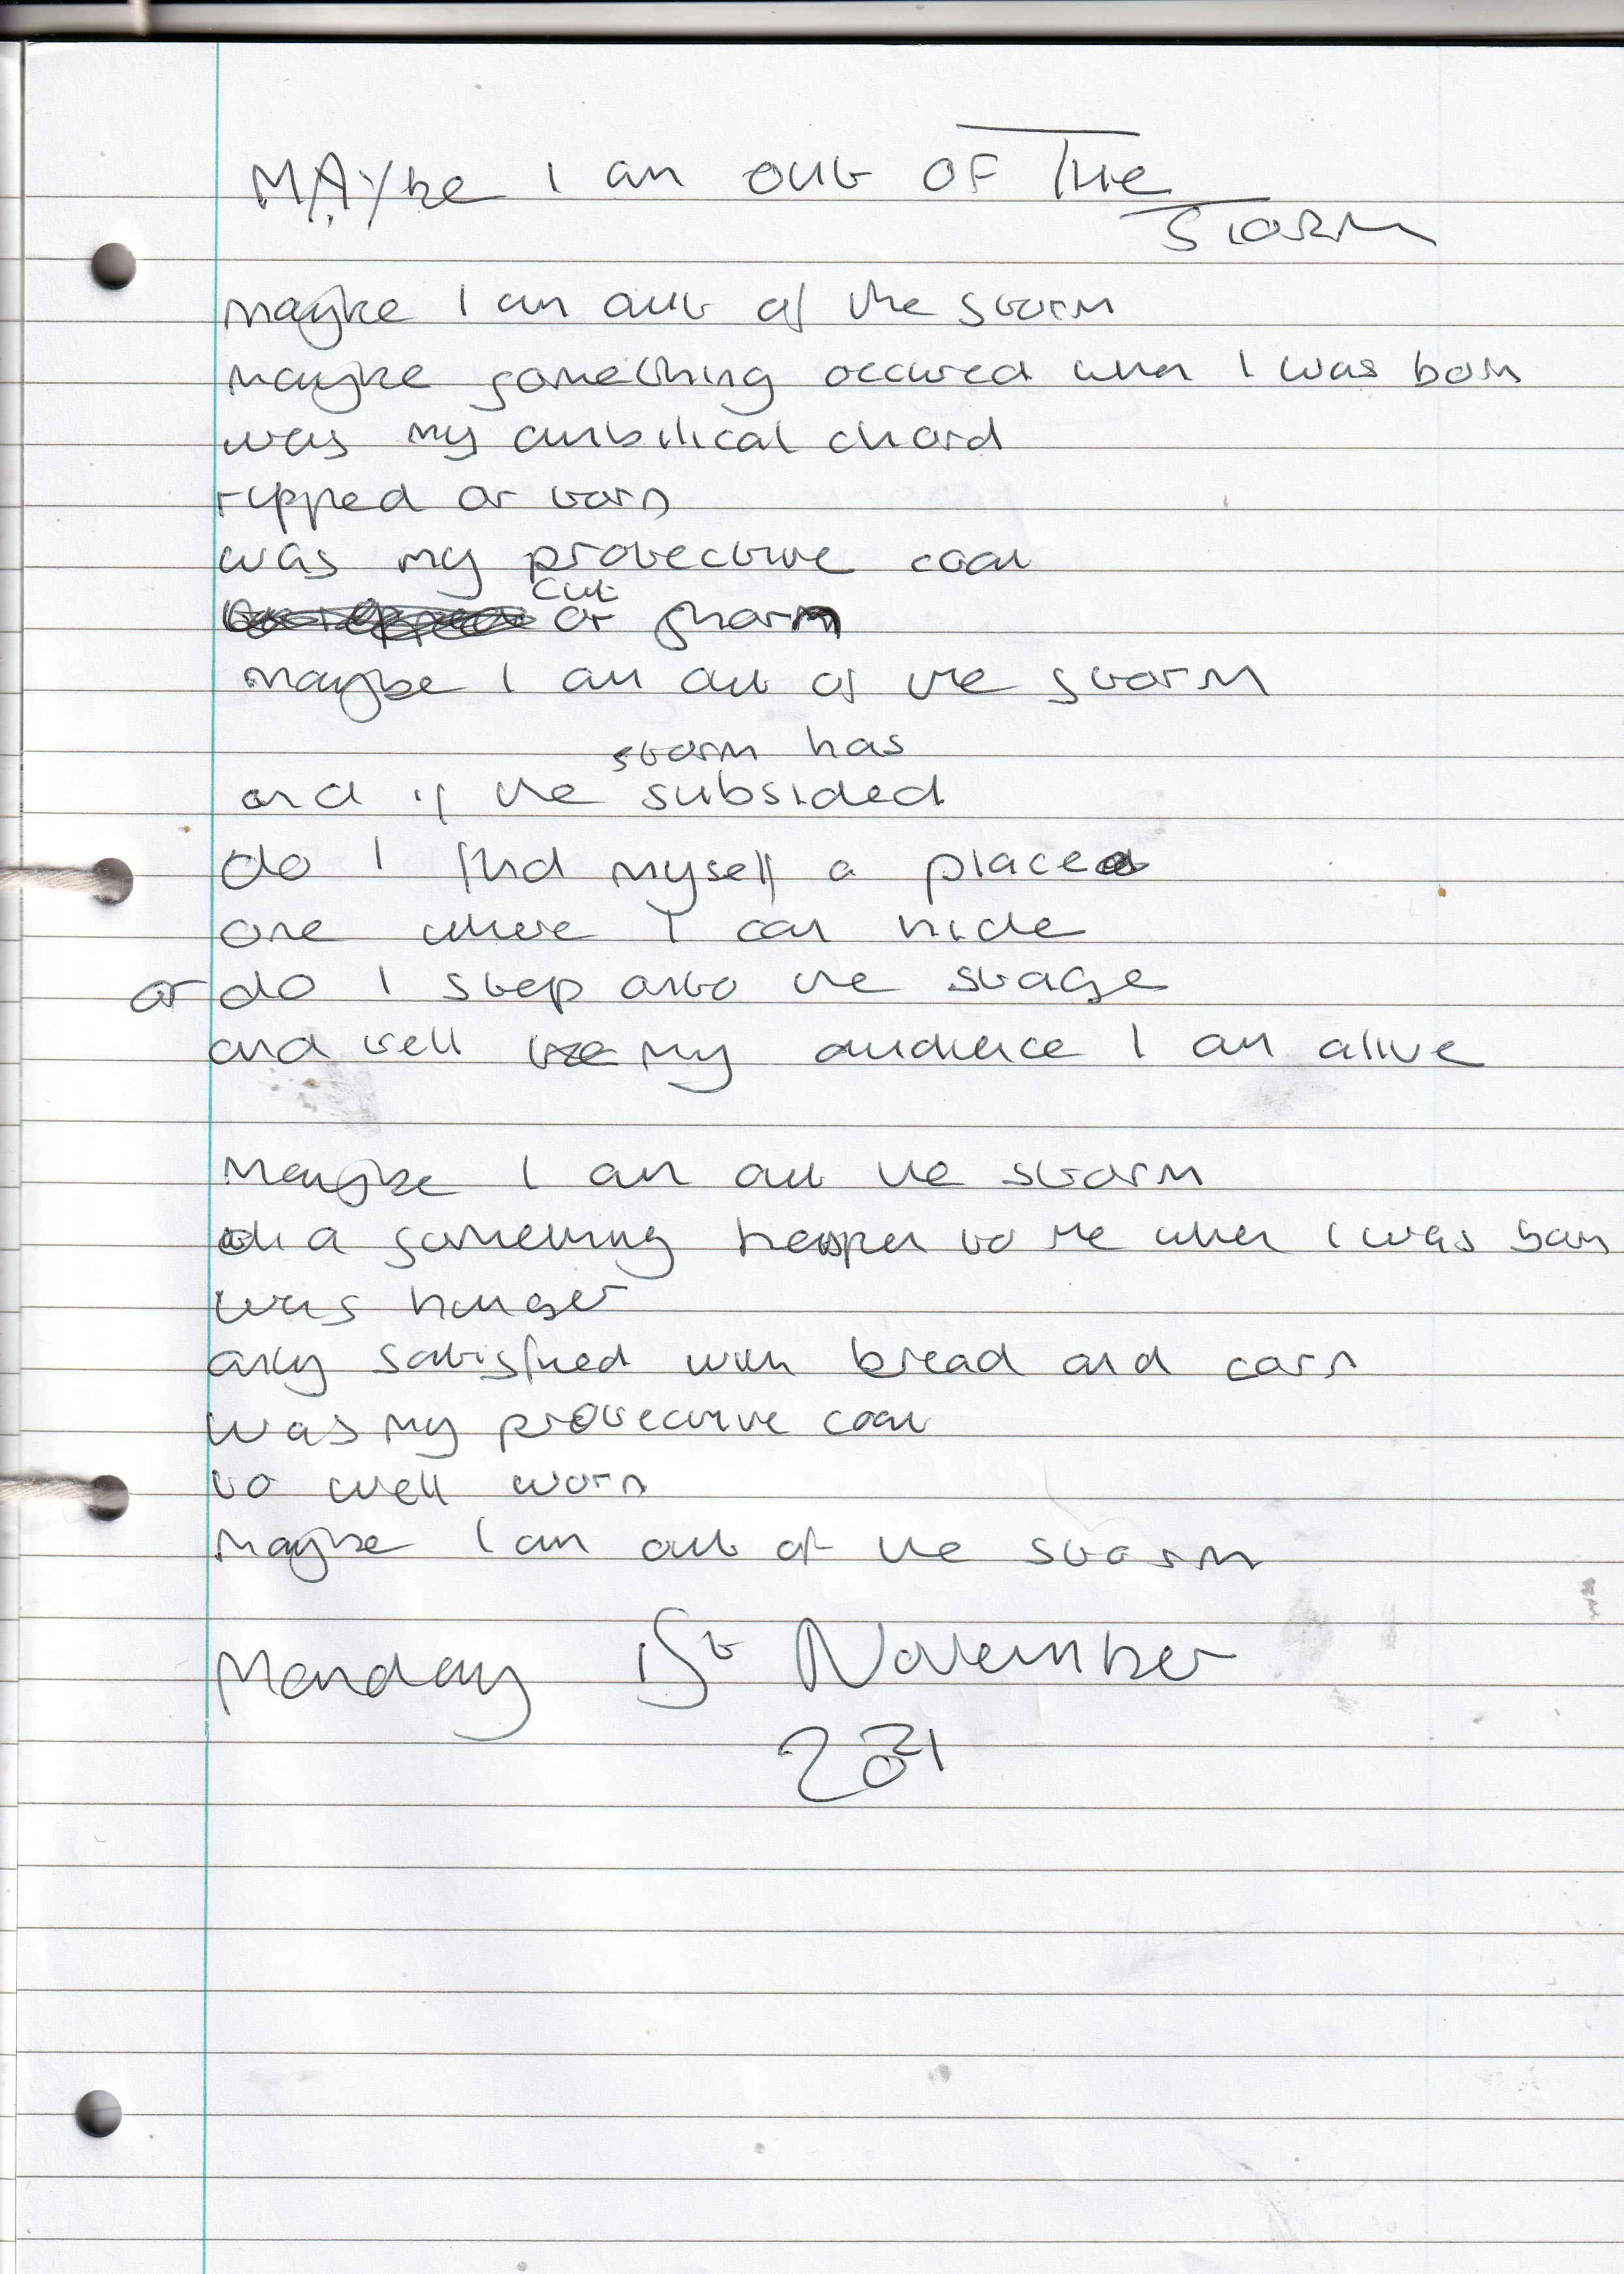 MAYbe I am out OF THE
STORM
maybe I am out of the storm
maybe something occured when I was born
was my umbilical chord
ripped or torn
was my protective coat
cut
or shorn
maybe I am out of the storm
storm has
and if the subsided
do I find myself a place
one where I can hide
or do I step onto the stage
and tell my audience I am alive
Maybe I am out the storm
did something happen to me when I was born
was hunger
only satisfied with bread and corn
was my protective coat
to well worn
maybe I am out of the storm
Monday 1st November
2021